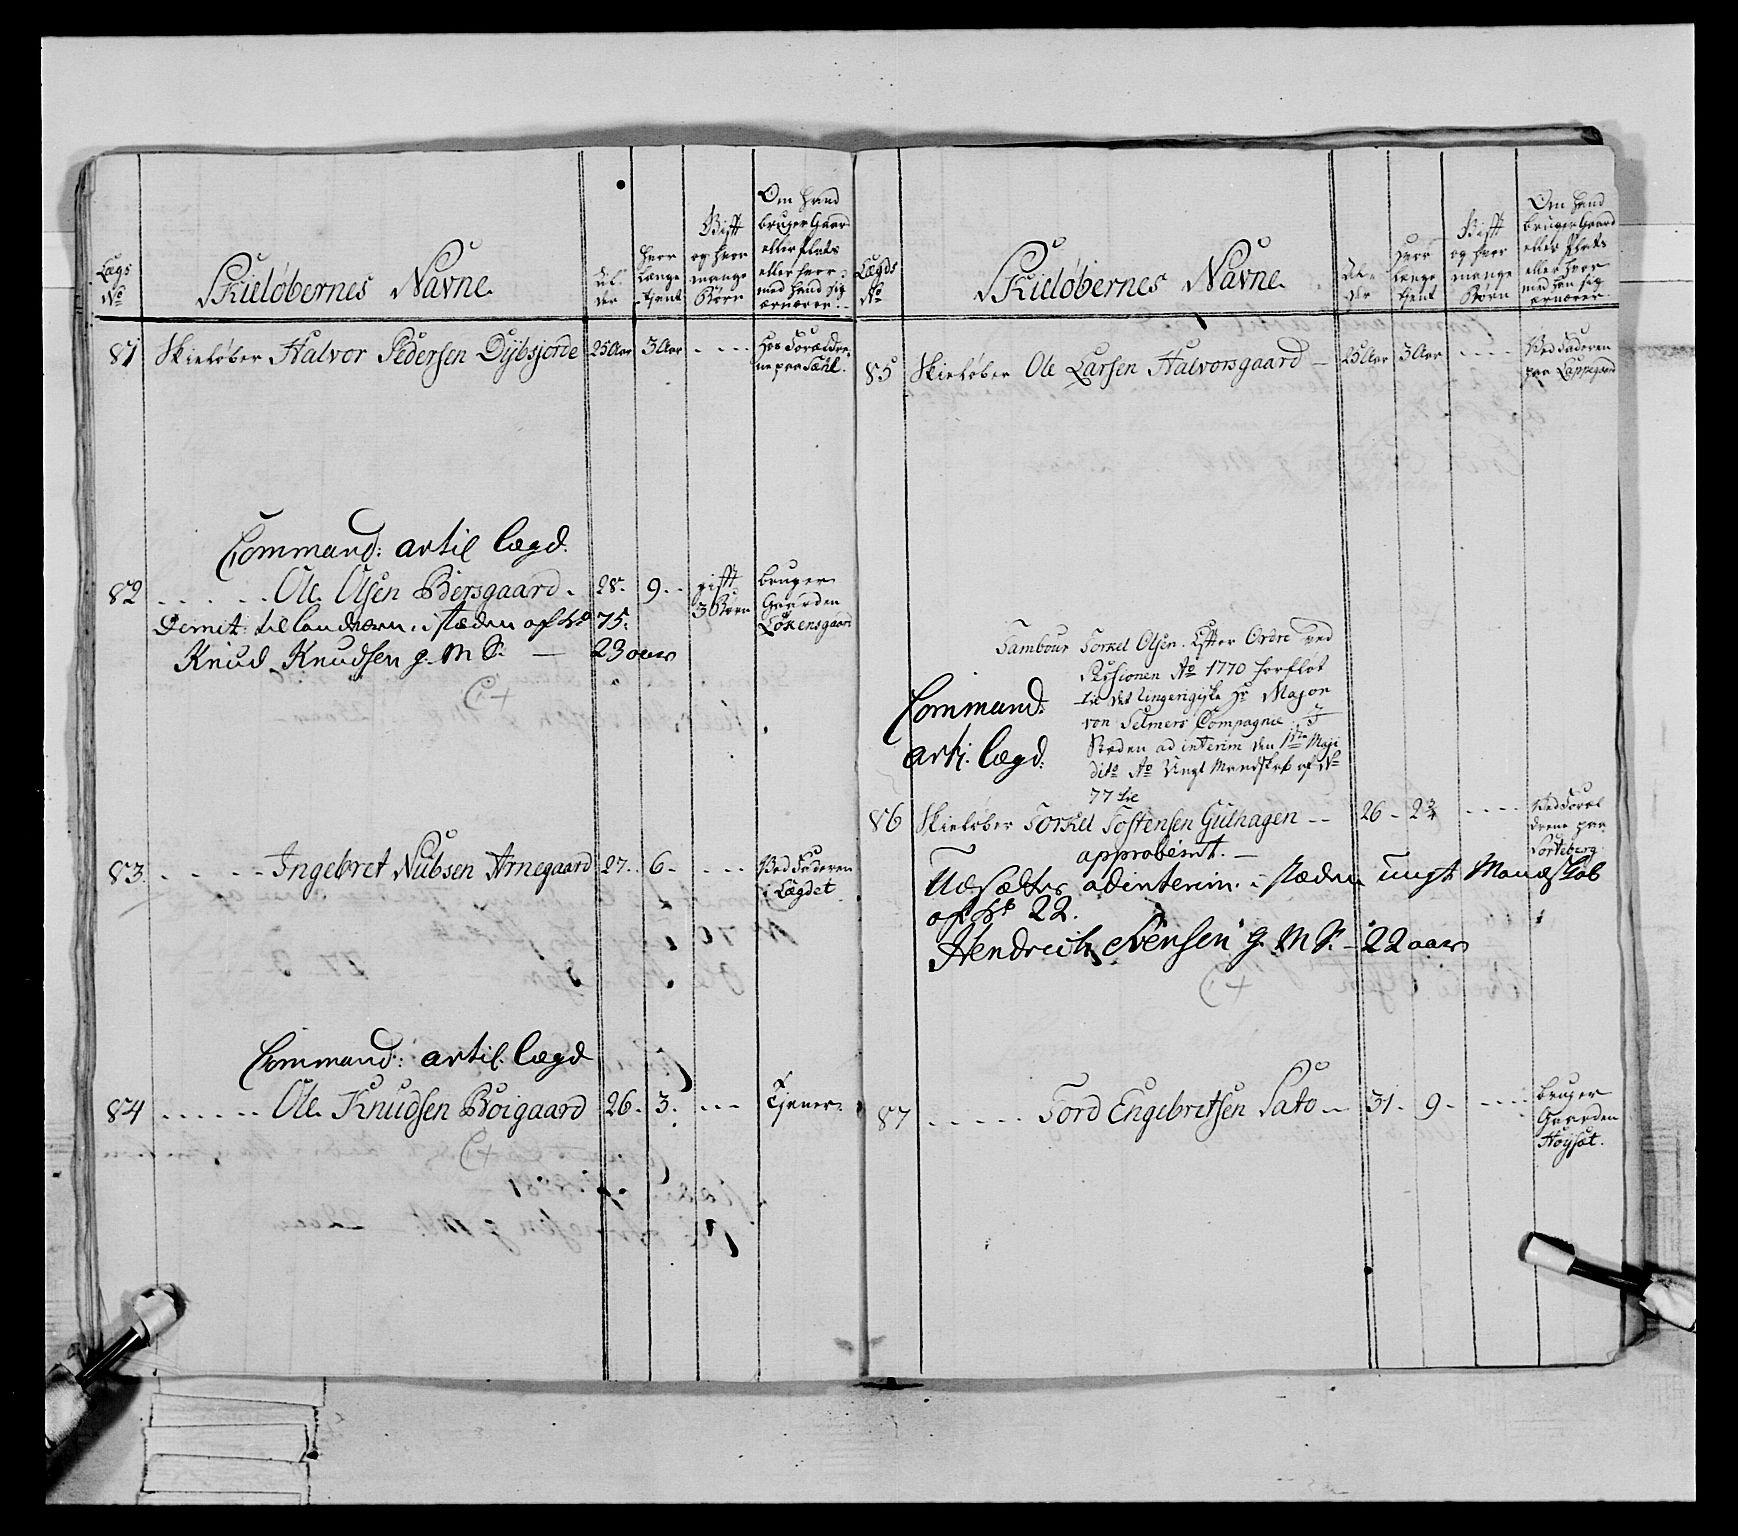 Lægs No
Skieløbernes Navne.
Al-
der
hvor
længe
tjent
Gift
og hvor
mange
Børn
Om hand
bruger Gaard
eller Plats
eller hvor-
med hand sig
ærnærer.
81 Skieløber Halvor Pedersen Dybsjorde 25 Aar 3 Aar - - - - Hos Forældre-
ne paa
Command: artil lægd.
82 - - - - - Ole Olsen Bersgaard. 28. 9. - gift 3 Børn bruger
Gaarden
Løkensgaard
Demit: til landværn. i stæden af No 75.
Knud Knudsen g. M S. — 23 aar
83. - - - - - Ingebret Nubsen Arnegaard 27. 6. - - - - Ved Faderen
i Lægdet.
Command: artil. lægd
84 - - - - - - Ole Knudsen Boigaard 26. 3. - - - Tjener.
Lægds No
Skieløbernes Navne.
Al-
der
hvor
længe
tjent
Gift
og hvor
mange
Børn
Om hand
bruger Gaard
eller Plats
eller hvor
med han sig
ærnærer.
85 Skieløber Ole Larsen Halvorsgaard — 25 Aar 3 Aar - - - - Ved Faderen
paa Lappegaard
Tambour Torkel Olsen. Efter Ordre ved
Sessionen Ao 1770 forfløt
til det Ungerigiske Hr Major
von Selmers Compagnie. I
Stæden ad interim den 1ste Maji
dito Ao Ungt Mandskab af No
77 til
Command:
arti. lægd:
86 Skieløber Torkel Tostensen Gulhagen - - 26 - 2¾ - - - - Ved Foræl
drene paa
Sorteberg
approbéert. —
Udsættes ad interim. i stæden ungt Mandskab
af No 22.
Hendrich Svensen g. M S. - 22 aar
87 - - - - - Tord Engebretsen Sato — 31 - 9 - - - - - bruger
Gaarden
Høysæt.